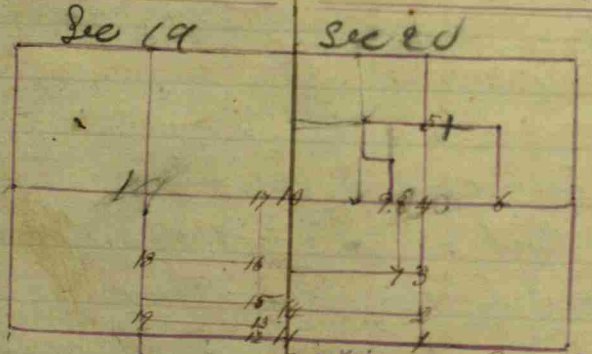 Sec 19 Sec 20
51
19 17 10 9 8 4 3 6
18 16 7 3
15 14 2
19 13
12 11 1